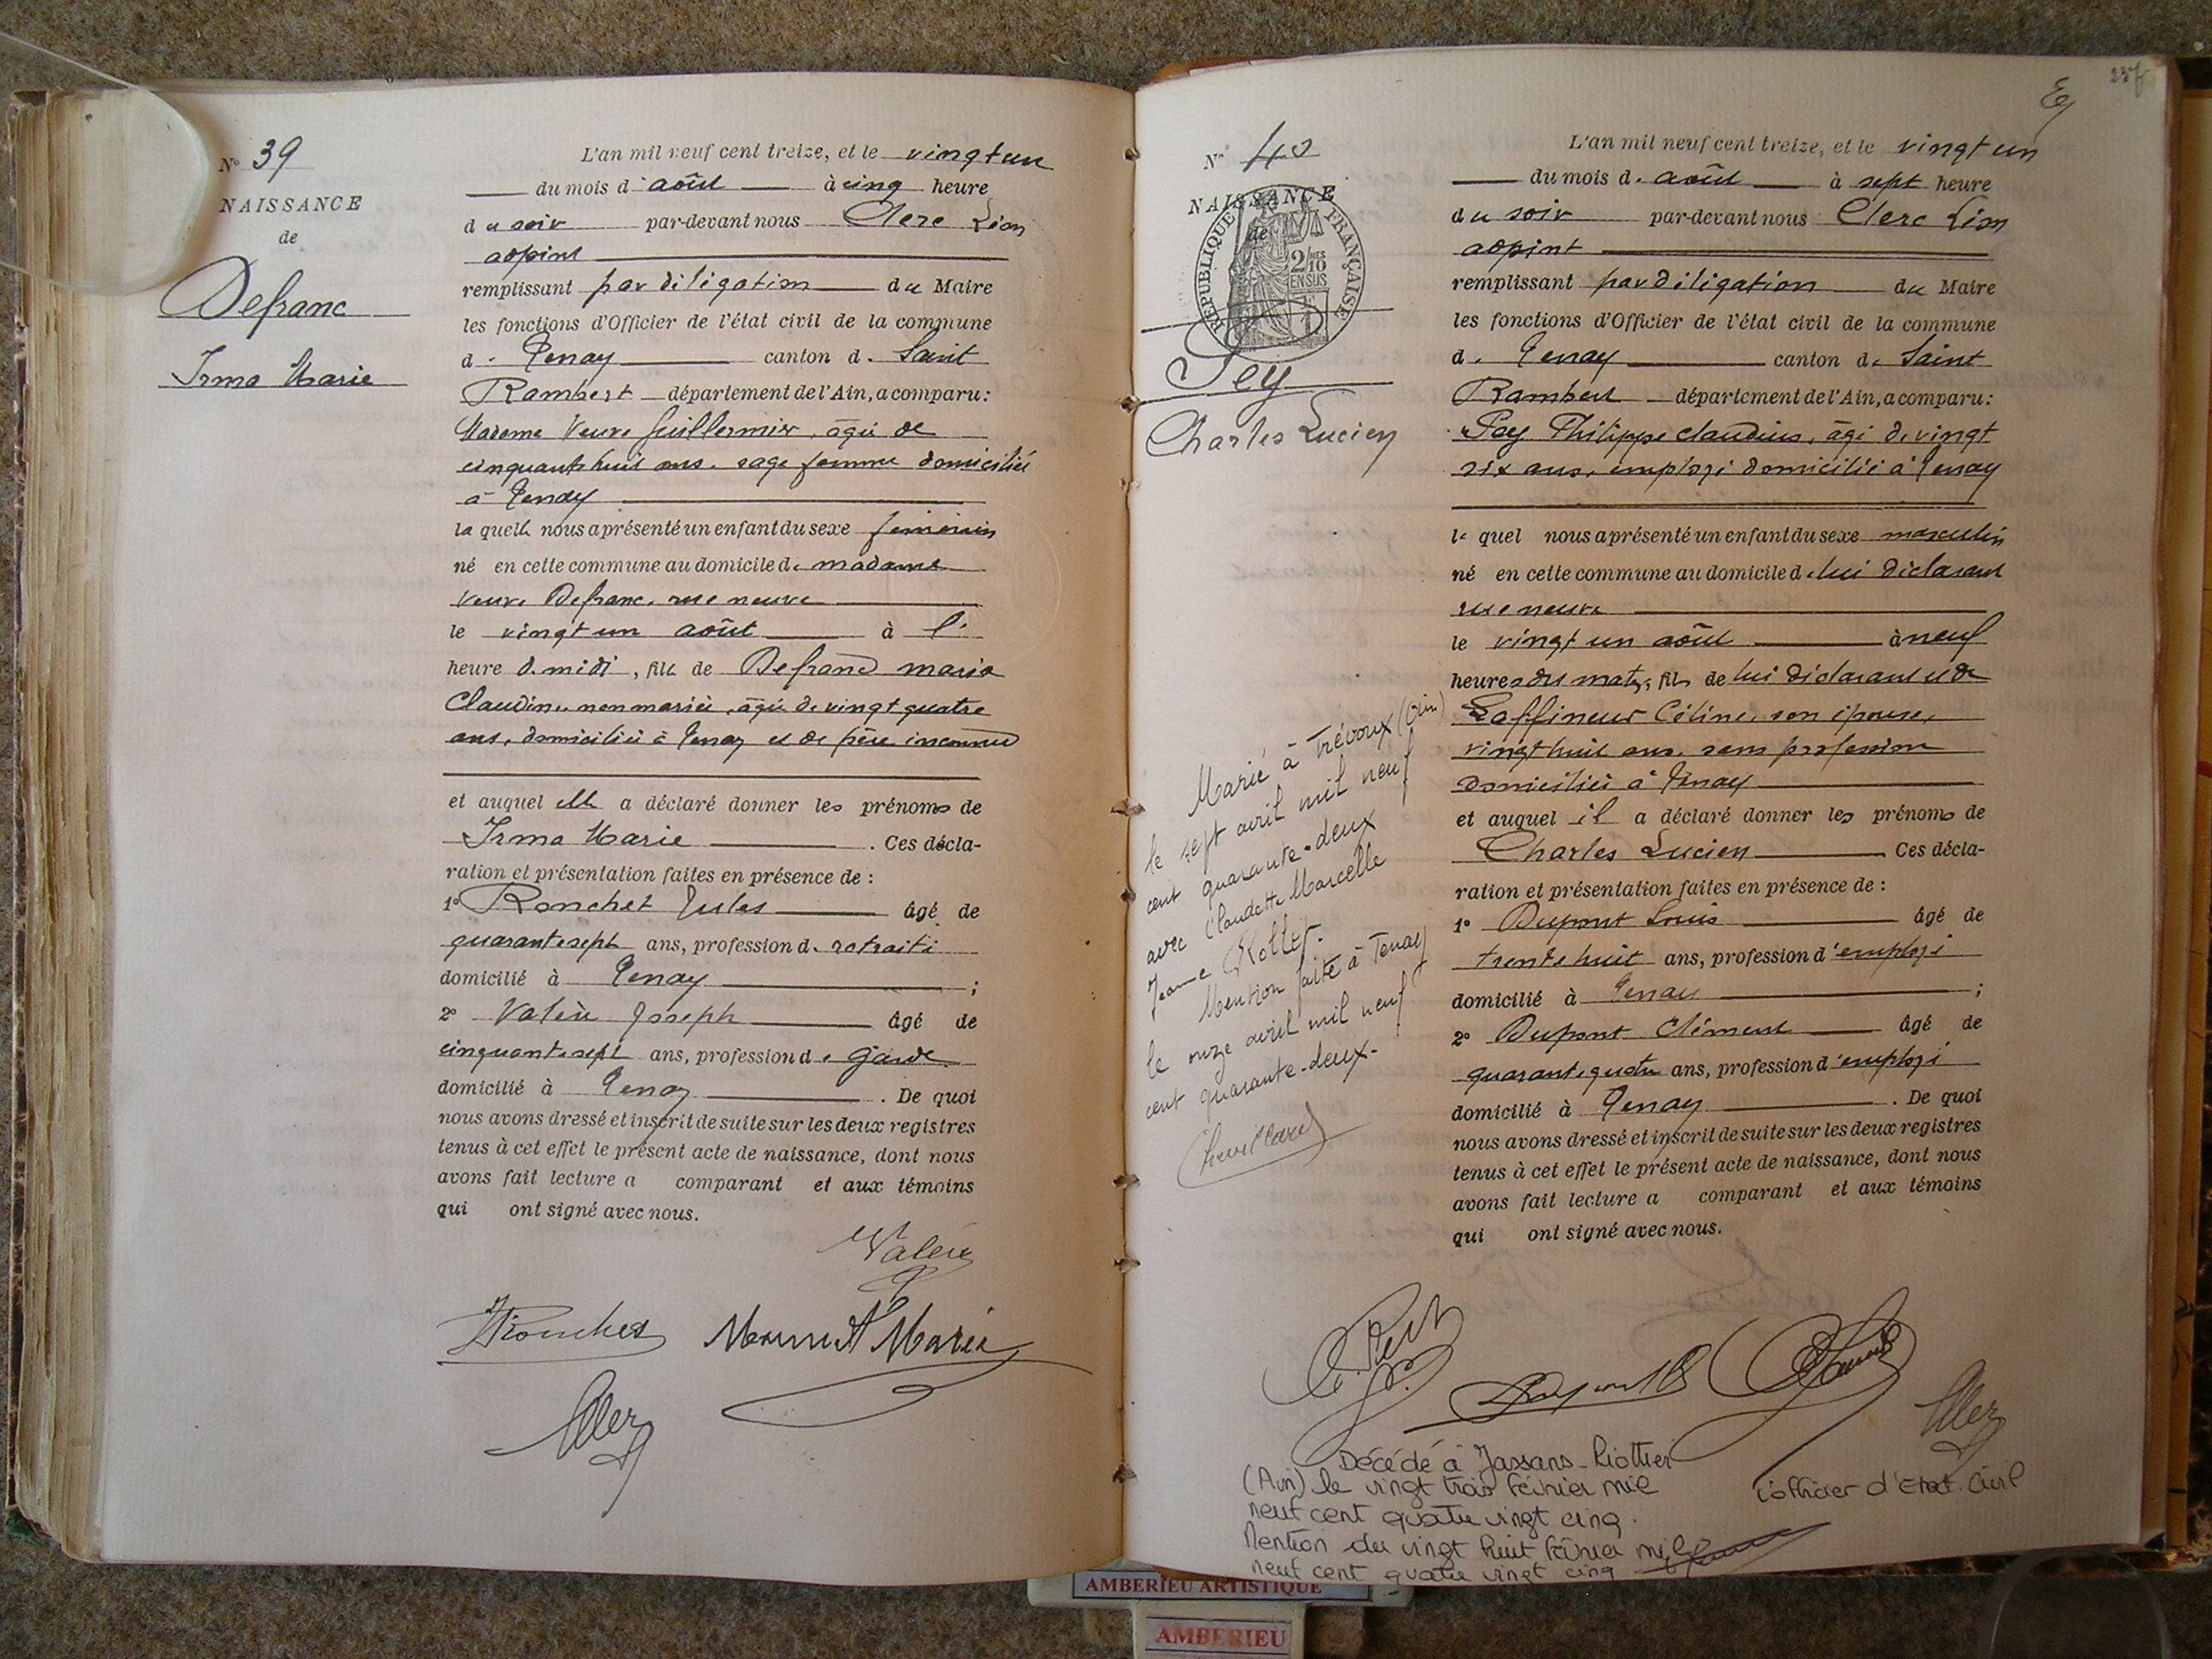 N° 39
NAISSANCE
de
Defranc
Irma Marie
L'an mil neuf cent treize, et le vingt un
du mois d'août à cinq heure
du soir par-devant nous Clerc Léon
adjoint
remplissant par délégation du Maire
les fonctions d'Officier de l'état civil de la commune
de Tenay canton de Saint
Rambert département de l'Ain, a comparu :
Madame Veuve Guillermier, âgée de
cinquante huit ans, sage femme domiciliée
à Tenay
laquelle nous a présenté un enfant du sexe féminin
né en cette commune au domicile de madame
veuve Defranc, rue neuve
le vingt un août à l'
heure de midi, fille de Defranc maria
Claudine non mariée, âgée de vingt quatre
ans, domiciliée à Tenay et de père inconnu
et auquel elle a déclaré donner les prénoms de
Irma Marie . Ces décla-
ration et présentation faites en présence de :
1° Ronchet Jules âgé de
quarante sept ans, profession de retraité
domicilié à Tenay ;
2° Valère Joseph âgé de
cinquante sept ans, profession de garde
domicilié à Tenay . De quoi
nous avons dressé et inscrit de suite sur les deux registres
tenus à cet effet le présent acte de naissance, dont nous
avons fait lecture a comparant et aux témoins
qui ont signé avec nous.
Valère
JRonchet Marie
Clerc
237
N° 40
NAISSANCE
de
RÉPUBLIQUE FRANÇAISE
2/10
EN SUS
Pey
Charles Lucien
L'an mil neuf cent treize, et le vingt un
du mois d'août à sept heure
du soir par-devant nous Clerc Léon
adjoint
remplissant par délégation du Maire
les fonctions d'Officier de l'état civil de la commune
de Tenay canton de Saint
Rambert département de l'Ain, a comparu :
Pey Philippe Claudius, âgé de vingt
six ans, employé domicilié à Tenay
lequel nous a présenté un enfant du sexe masculin
né en cette commune au domicile de lui déclarant
rue neuve
le vingt un août à neuf
heures du matin, fils de lui déclarant et de
Laffineur Céline, son épouse,
vingt huit ans, sans profession
domiciliée à Tenay
et auquel il a déclaré donner les prénoms de
Charles Lucien Ces décla-
ration et présentation faites en présence de :
1° Dupont Louis âgé de
trente huit ans, profession d'employé
domicilié à Tenay ;
2° Dupont Clément âgé de
quarante quatre ans, profession d'employé
domicilié à Tenay . De quoi
nous avons dressé et inscrit de suite sur les deux registres
tenus à cet effet le présent acte de naissance, dont nous
avons fait lecture a comparant et aux témoins
qui ont signé avec nous.
Marié à Trévoux (Ain)
le sept avril mil neuf
cent quarante-deux
avec Claudette Marcelle
Jeanne Rollet.
Mention faite à Tenay
le onze avril mil neuf
cent quarante-deux.
Clerc
Décédé à Jassans-Riottier
(Ain) le vingt trois février mil
neuf cent quatre vingt cinq.
Mention du vingt huit février mil
neuf cent quatre vingt cinq
L'officier d'Etat Civil
AMBERIEU ARTISTIQUE
AMBERIEU